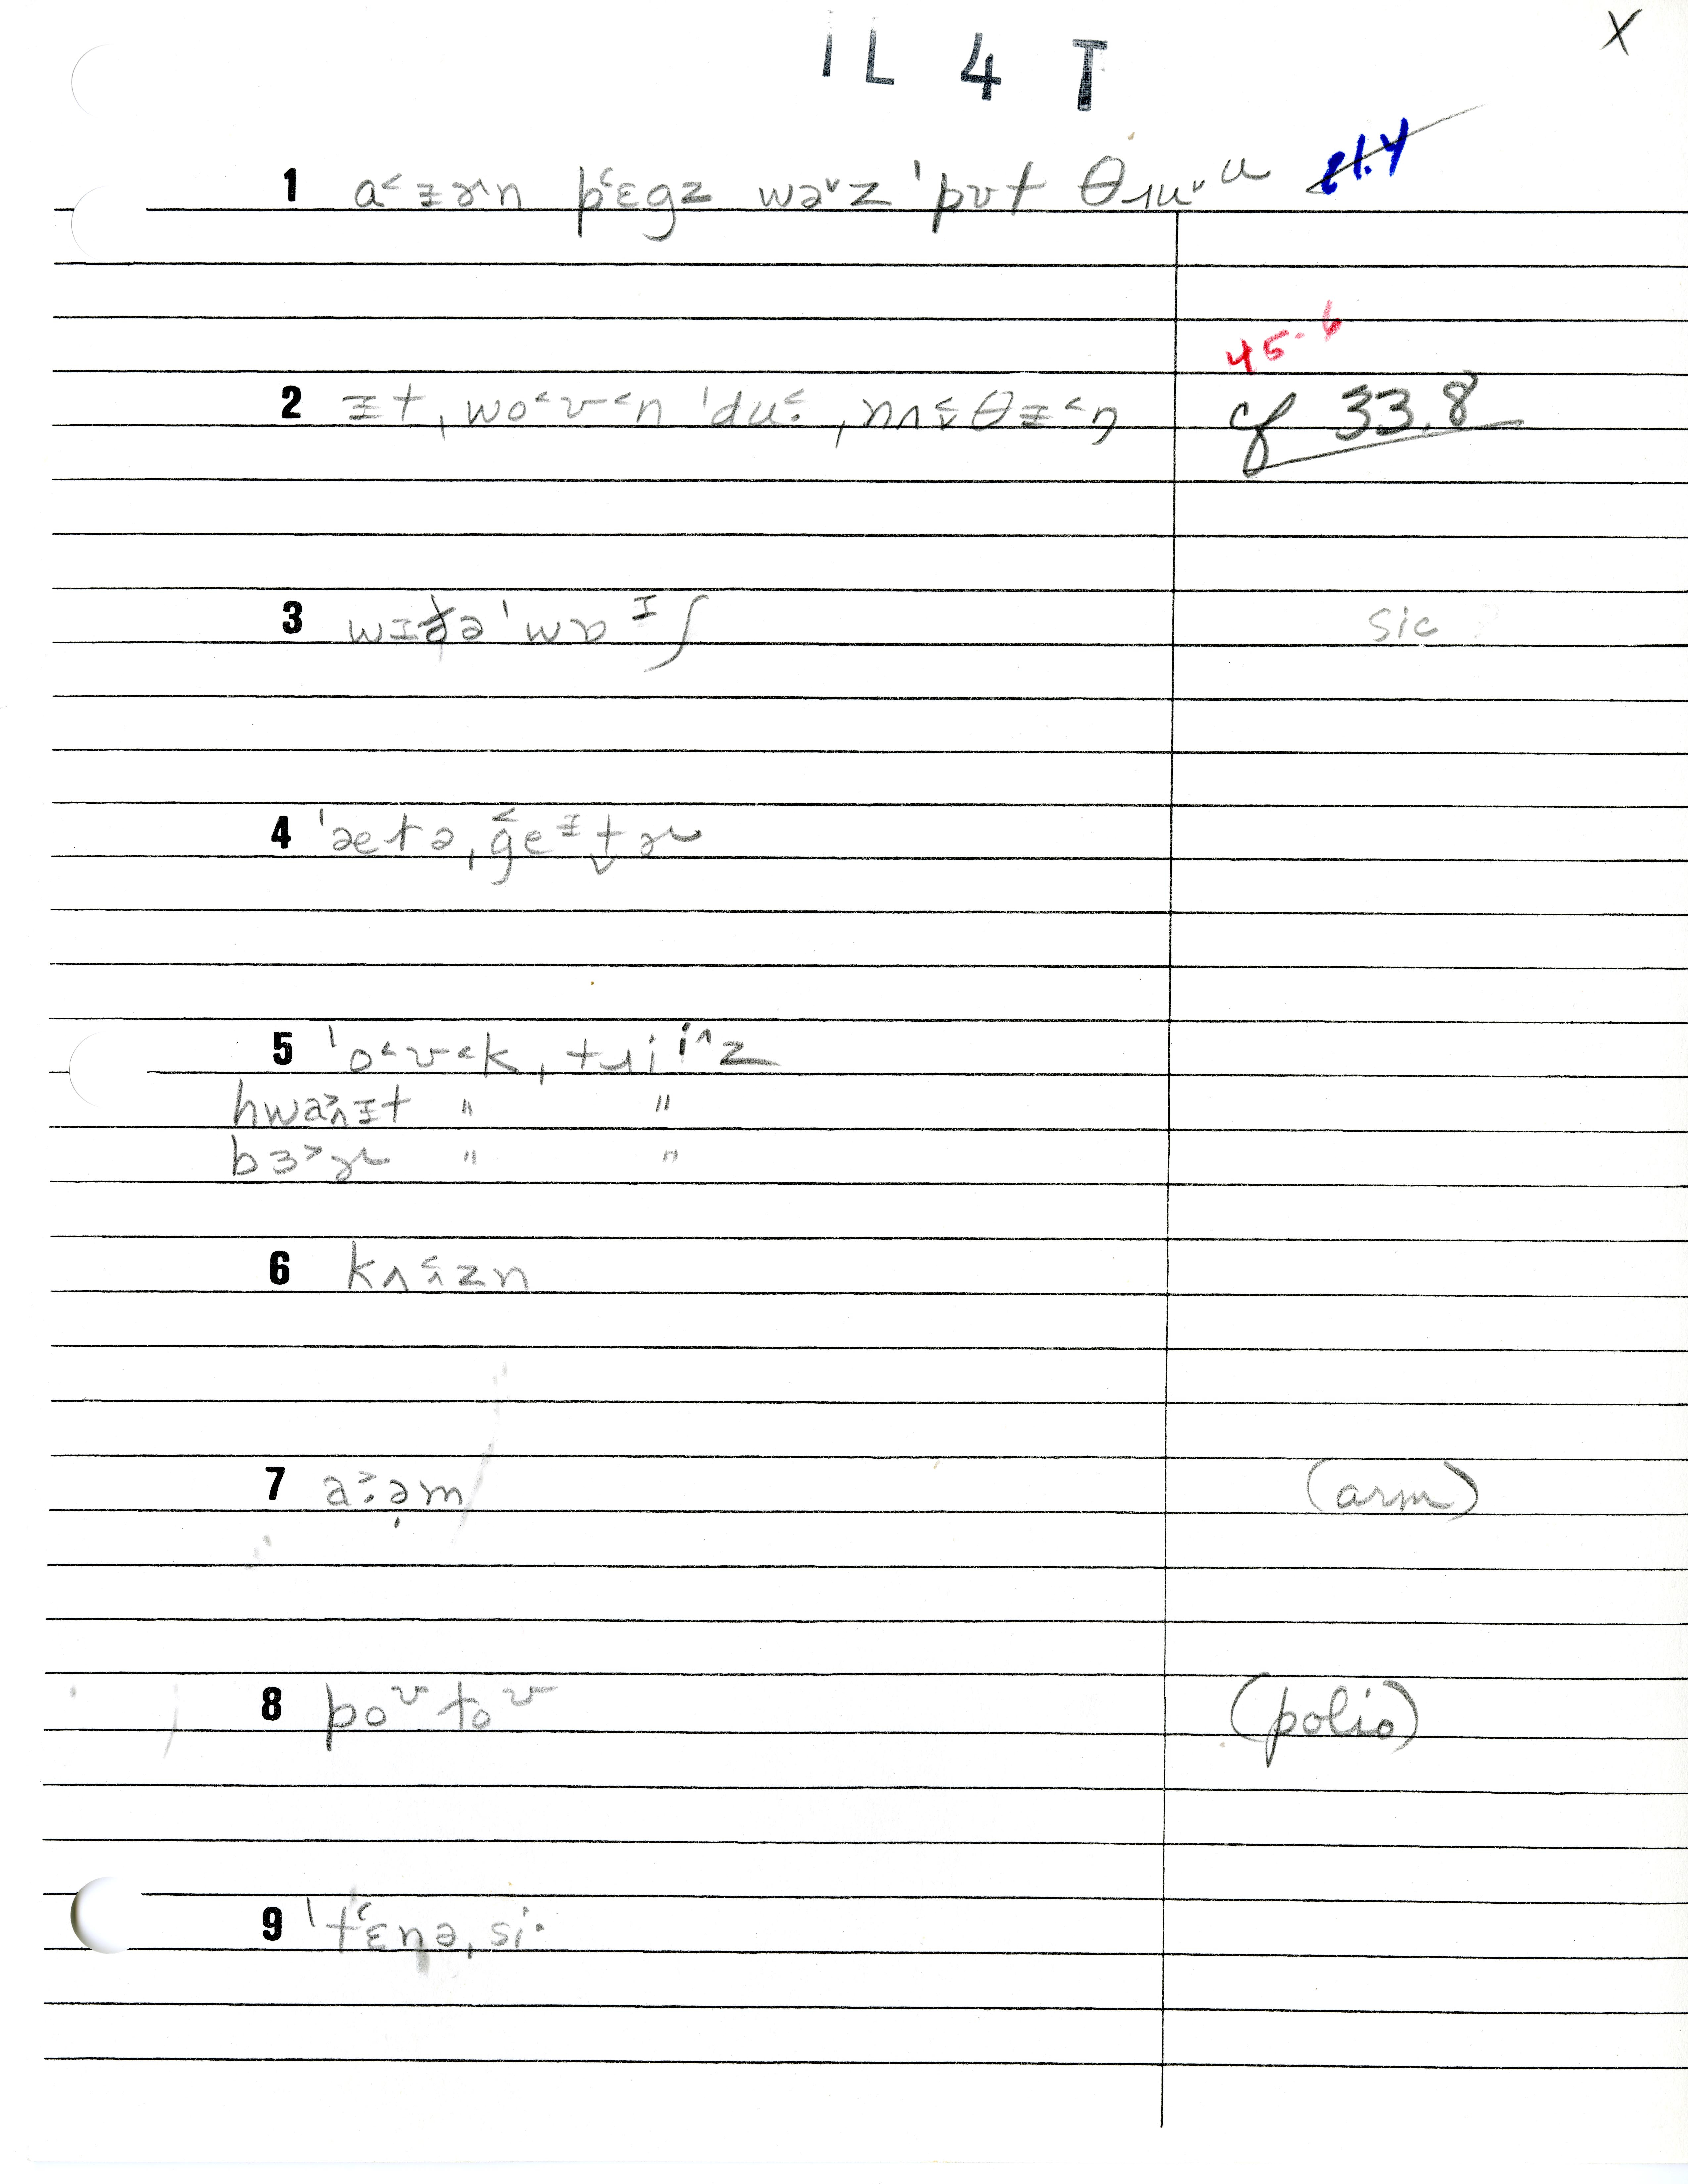 IL 4 T
X
1 a˂ɪɚ^n p˂ɛgz wə˅z ˈpʊt θɹu˅u 21.4
45-6
2 ɪt ˌwo˂ʊ˂n ˈdu˂· ˌnʌ˂˅θɪ˂ŋ cf 33.8
3 wɪðəˈwɒɪʃ sic
4 ˈætəˌge˂ɪt˅ɚ
5 ˈo˂ʊ˂kˌtɹii^z
hwa˃^ɪt " "
bɜ˃ɚ " "
6 kʌ˂^zn
7 a˃·ə̣m (arm)
8 poʊtoʊ (polio)
9 ˈt˂ɛnəˌsi·